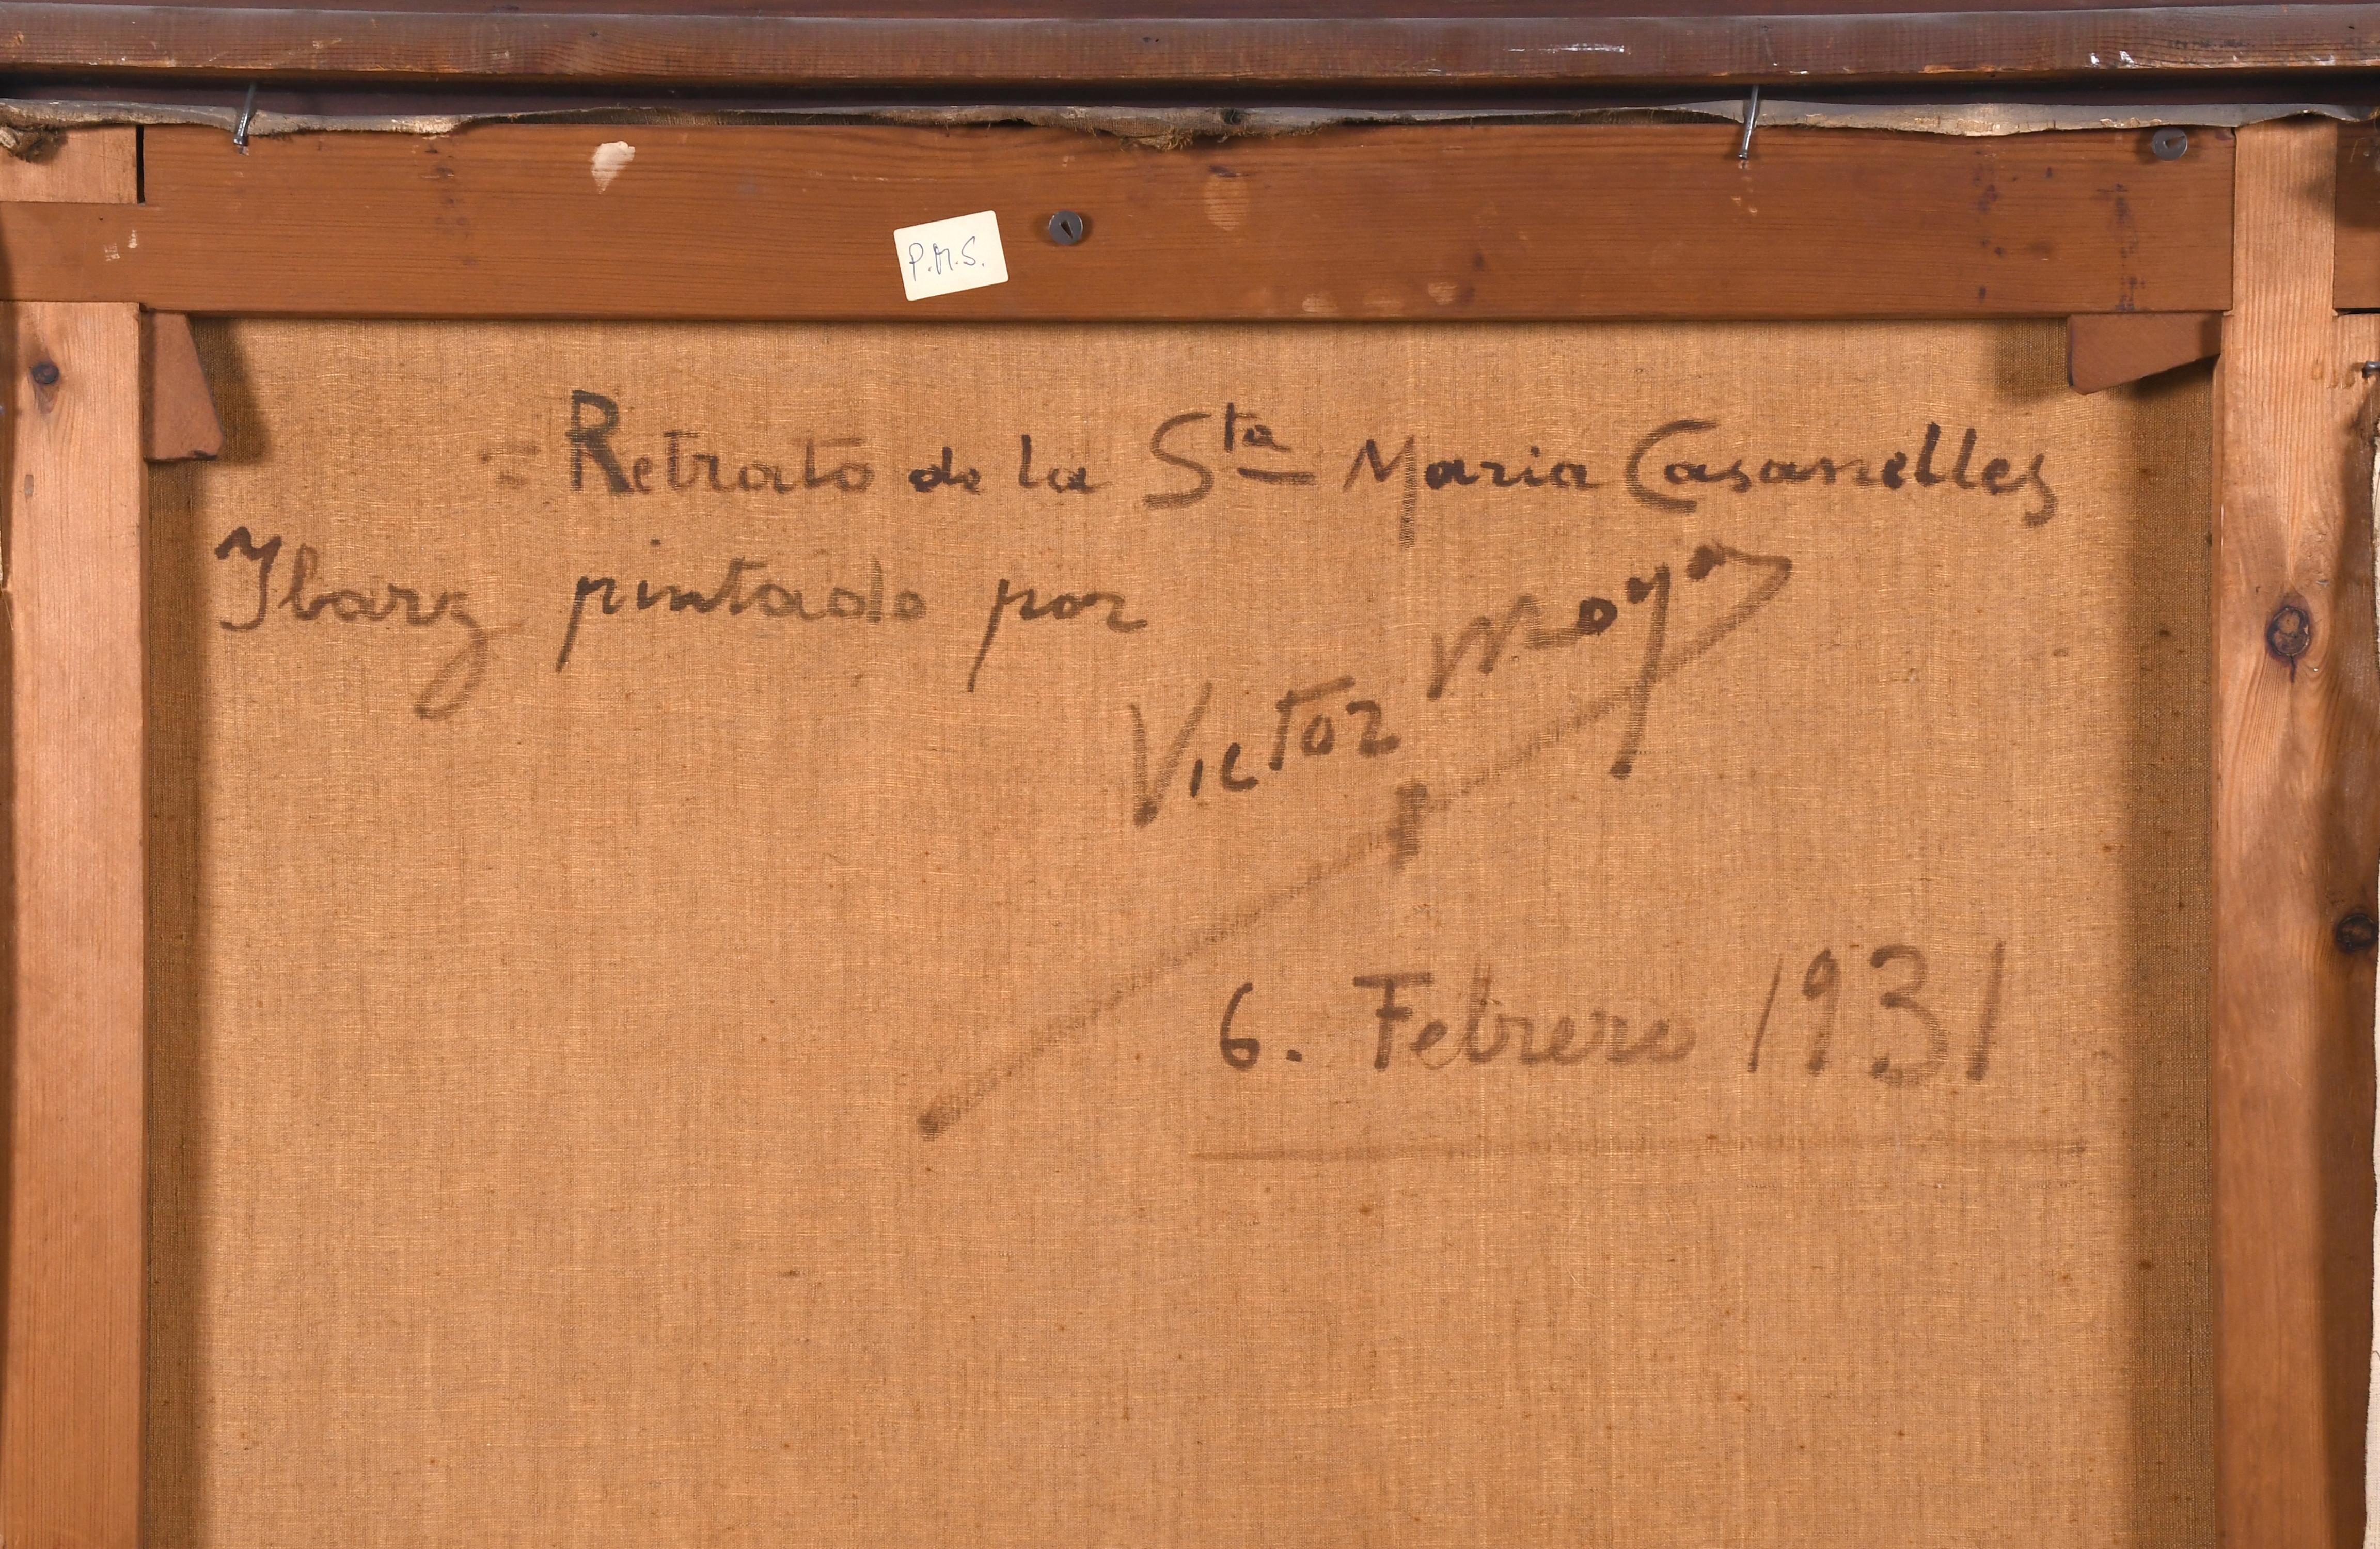 P.M.S.
= Retrato de la Sta Maria Casanelles
Ybarz pintado por
Victor Moya
6. Febrero 1931